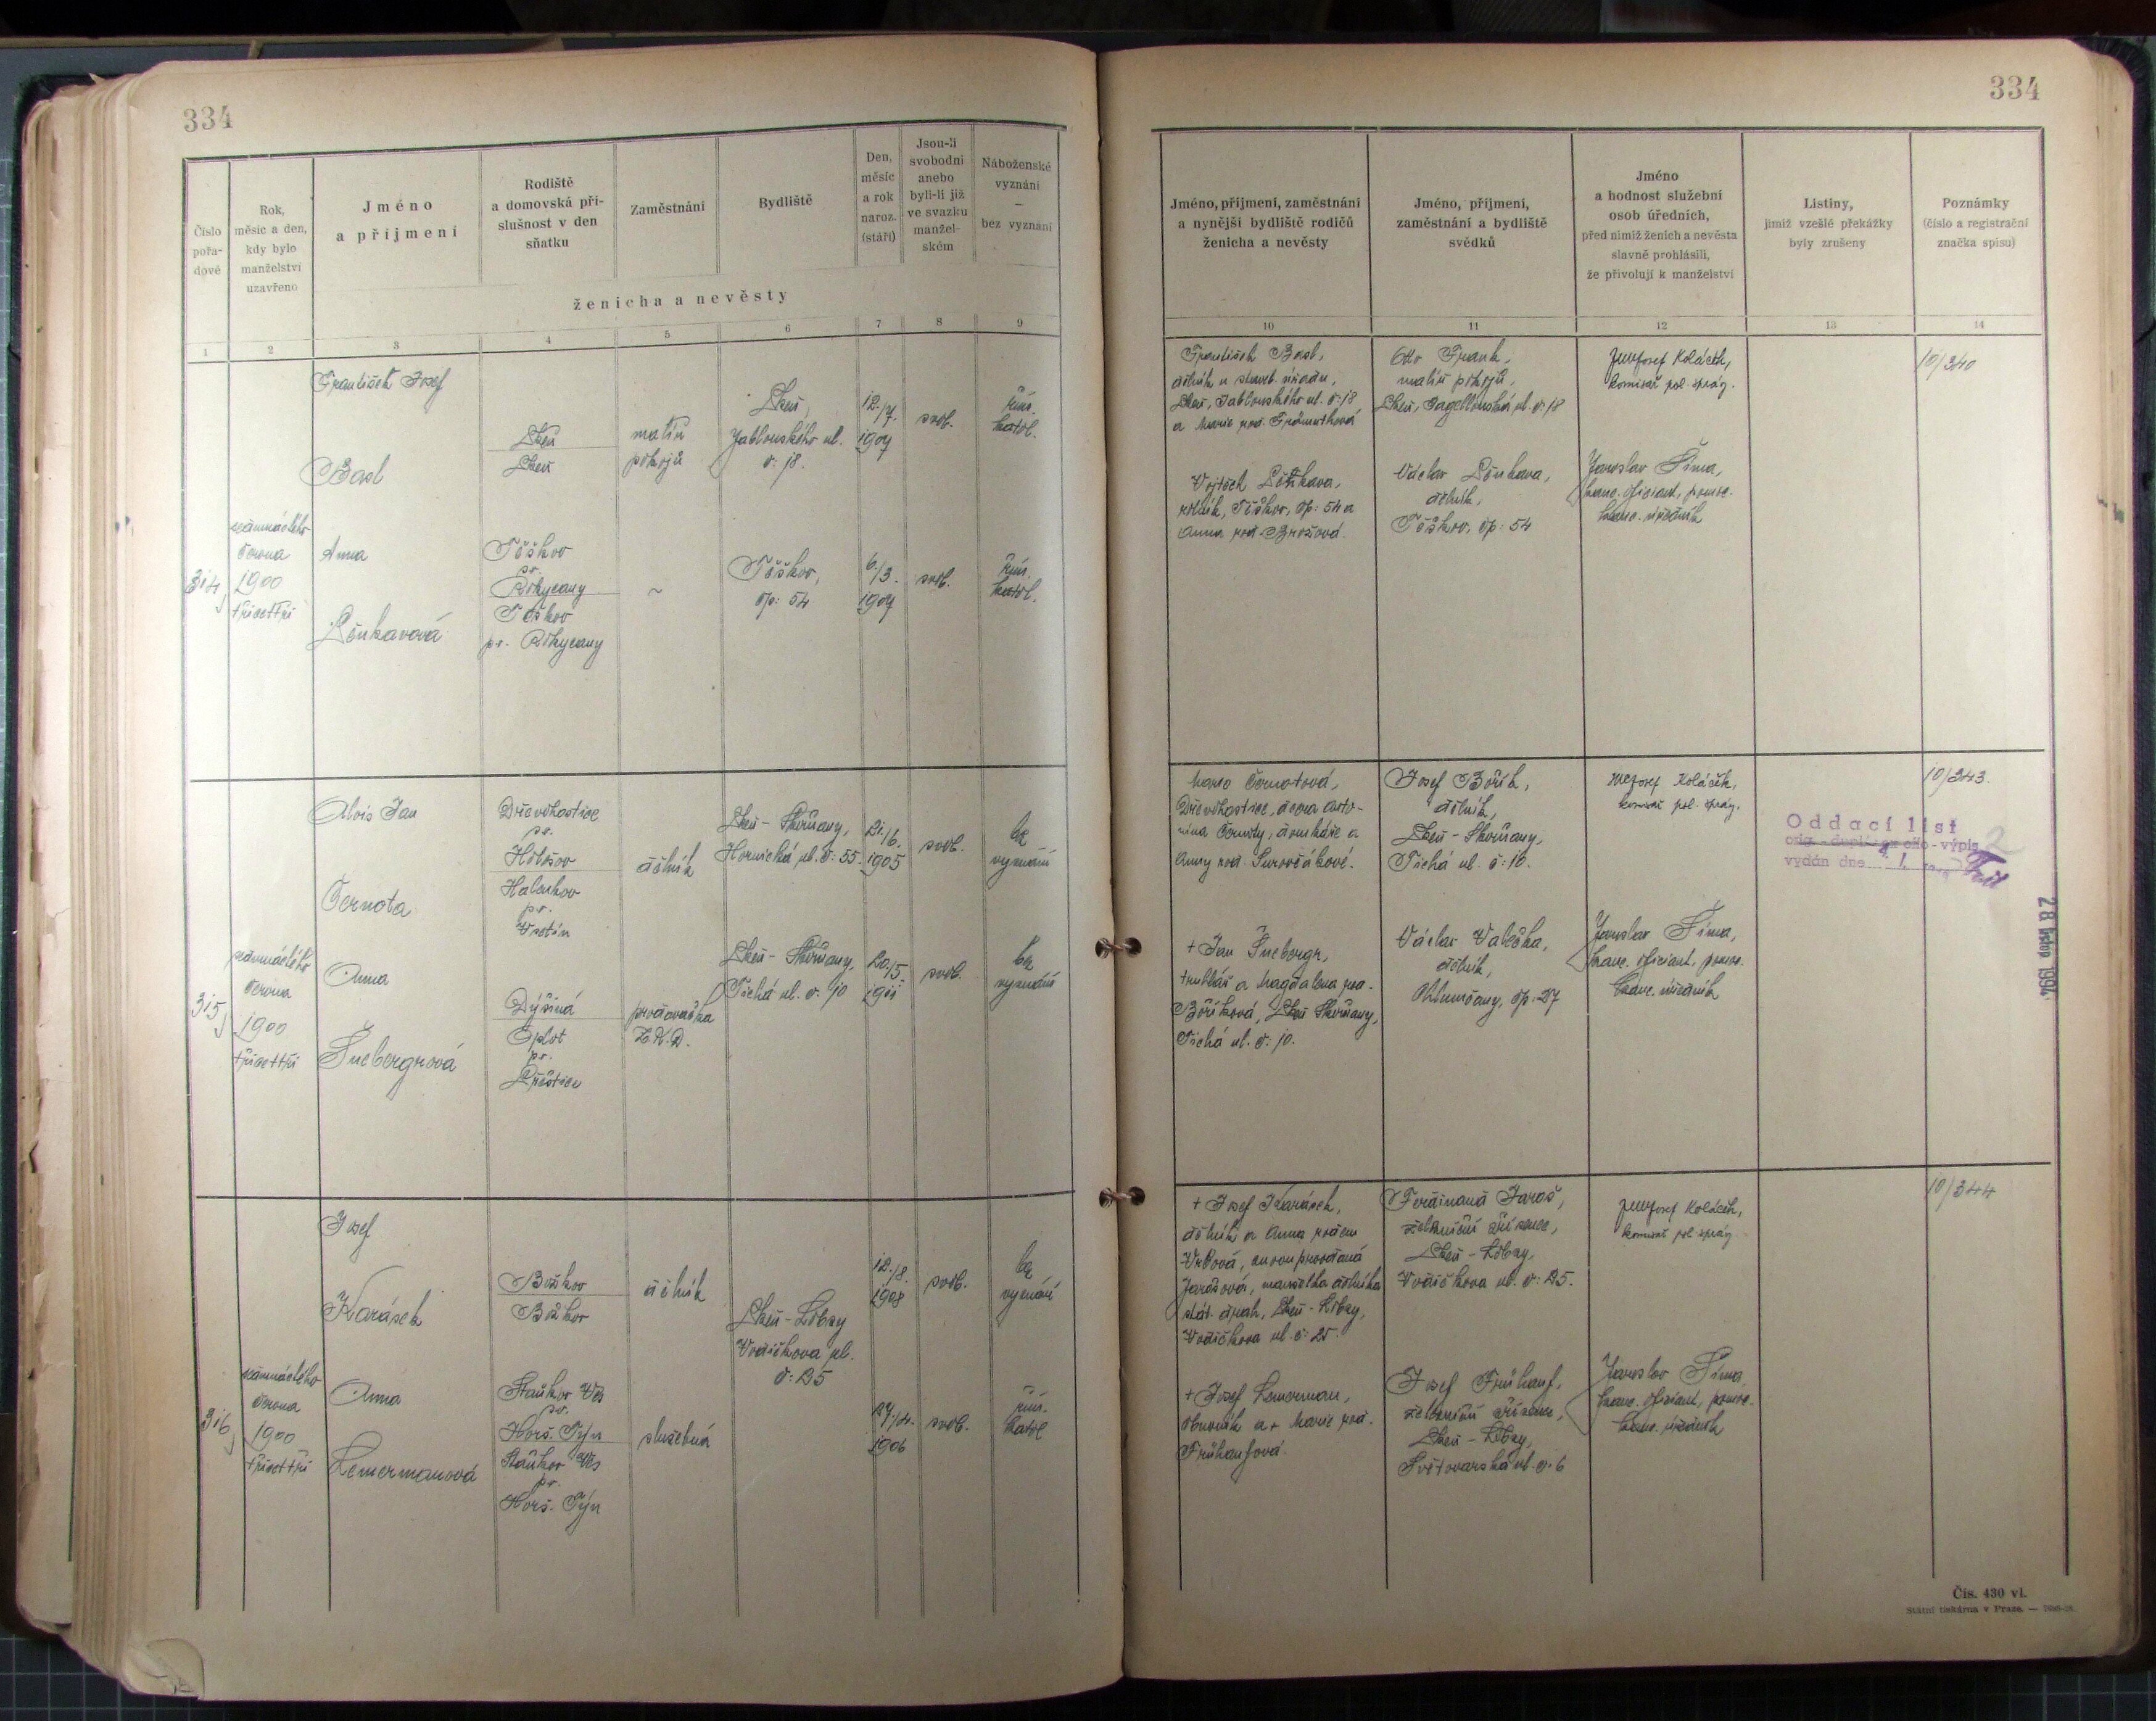 334
334
Číslo pořa-dové
Rok, měsíc a den, kdy bylo manželství uzavřeno
Jméno a příjmení
Rodiště a domovská pří-slušnost v den sňatku
Zaměstnání
Bydliště
Den, měsíc a rok naroz. (stáří)
Jsou-li svobodni anebo byli-li již ve svazku manžel-ském
Náboženské vyznání – bez vyznání
ženicha a nevěsty
Jméno, příjmení, zaměstnání a nynější bydliště rodičů ženicha a nevěsty
Jméno, příjmení, zaměstnání a bydliště svědků
Jméno a hodnost služební osob úředních, před nimiž ženich a nevěsta slavně prohlásili, že přivolují k manželství
Listiny, jimiž vzešlé překážky byly zrušeny
Poznámky (číslo a registrační značka spisu)
1 2 3 4 5 6 7 8 9
10 11 12 13 14
314
června
1900
třicettři
František Josef
Basl
Plzeň
Plzeň
malíř
pokojů
Plzeň,
Jablonského ul.
č: 18.
12./7.
1907
svob.
řím.
katol.
Anna
Löukavová
Těškov
pr.
Rokycany
Těškov
pr. Rokycany
~
Těškov,
čp: 54
6./3.
1907
svob.
řím.
katol.
František Basl,
dělník u staveb. úřadu,
Plzeň, Jablonského ul. č: 18
a Marie roz.
Otto Frank,
malíř pokojů,
Plzeň, Jagellonská ul. č: 18
Josef Koláček,
komisař pol. správ.
10/340
Vojtěch
rolník, Těškov, čp: 54 a
Anna roz. Brožová.
Václav
dělník,
Těškov, čp: 54
Jaroslav Šíma,
kanc. oficiant, pomoc.
kanc. úředník
315
června
1900
třicettři
Alois Jan
Černota
Dřevohostice
pr.
Holešov
Halenkov
pr.
Vsetín
dělník
Plzeň - Skvrňany,
Hornická ul. č: 55.
21./6.
1905
svob.
bez
vyznání
Anna
Šnebergrová
Dýšiná
Oplot
pr.
Přeštice
prodavačka
Plzeň - Skvrňany,
Tichá ul. č. 10
20./5.
1911
svob.
bez
vyznání
Marie Černotová,
Dřevohostice, dcera Anto-
nína Černoty, domkáře a
Anny roz. Surovčákové.
Josef Bořík,
dělník,
Plzeň - Skvrňany,
Tichá ul. č: 10.
Josef Koláček,
komisař pol. správ.
10/343.
Oddací list
orig.-duplikát-výpis
vydán dne
28
+ Jan Šnebergr,
truhlář a Magdalena roz.
Boříková, Plzeň Skvrňany,
Tichá ul. č: 10.
Václav Valečka,
dělník,
Chlumčany, čp: 27
Jaroslav Šíma,
kanc. oficiant, pomoc.
kanc. úředník
316
června
1900
třicettři
Josef
Karásek
Božkov
Božkov
dělník
Plzeň - Lobzy
Vodičkova ul.
č: 25
12./8.
1908
svob.
bez
vyznání
Anna
Lemermanová
Staňkov Ves
pr.
Horš. Týn
Staňkov Ves
pr.
Horš. Týn
služebná
27./4.
1906
svob.
řím.
katol
+ Josef Karásek,
dělník a Anna rozen
Vrbová, znovu provdaná
Jarošová, manželka dělníka
stát. drah, Plzeň - Lobzy,
Vodičkova ul. č: 25.
Ferdinand Jaroš,
železniční zřízenec,
Plzeň - Lobzy,
Vodičkova ul. č: 25.
Josef Koláček,
komisař pol. správ.
10/344
+ Josef Lemerman,
obuvník a + Marie roz.
Frühaufová.
Josef Frühauf,
železniční zřízenec,
Plzeň - Lobzy,
Světovarská ul. č. 6
Jaroslav Šíma,
kanc. oficiant, pomoc.
kanc. úředník
Čís. 430 vl.
Státní tiskárna v Praze.